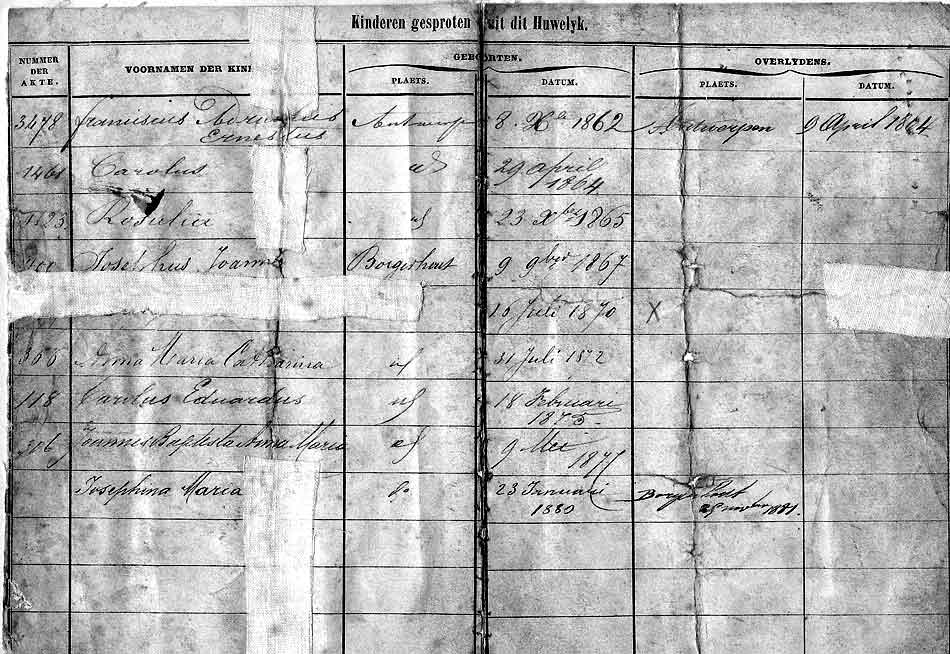 Kinderen gesproten uit dit Huwelyk.
NUMMER DER AKTE.
VOORNAMEN DER KIN
GEBOORTEN.
OVERLYDENS.
PLAETS.
DATUM.
PLAETS.
DATUM.
3478 franciscus
Ernestus
Antwerpen 8. Xbr 1862 Antwerpen 9 April
Carolus id 29 april
1864
Rosalia id 23 Xber 1865
Josephus Joannes Borgerhout 9 9ber 1867
16 Juli 1870 X
Anna Maria Catharina id 31 Juli 1872
118 Carolus Eduardus id 18 Februari
1875
306 Joannes Baptista Anna Maria id 9 Mei
1877
Josephina Maria do 23 Januari
1880
Borgerhout
1881.